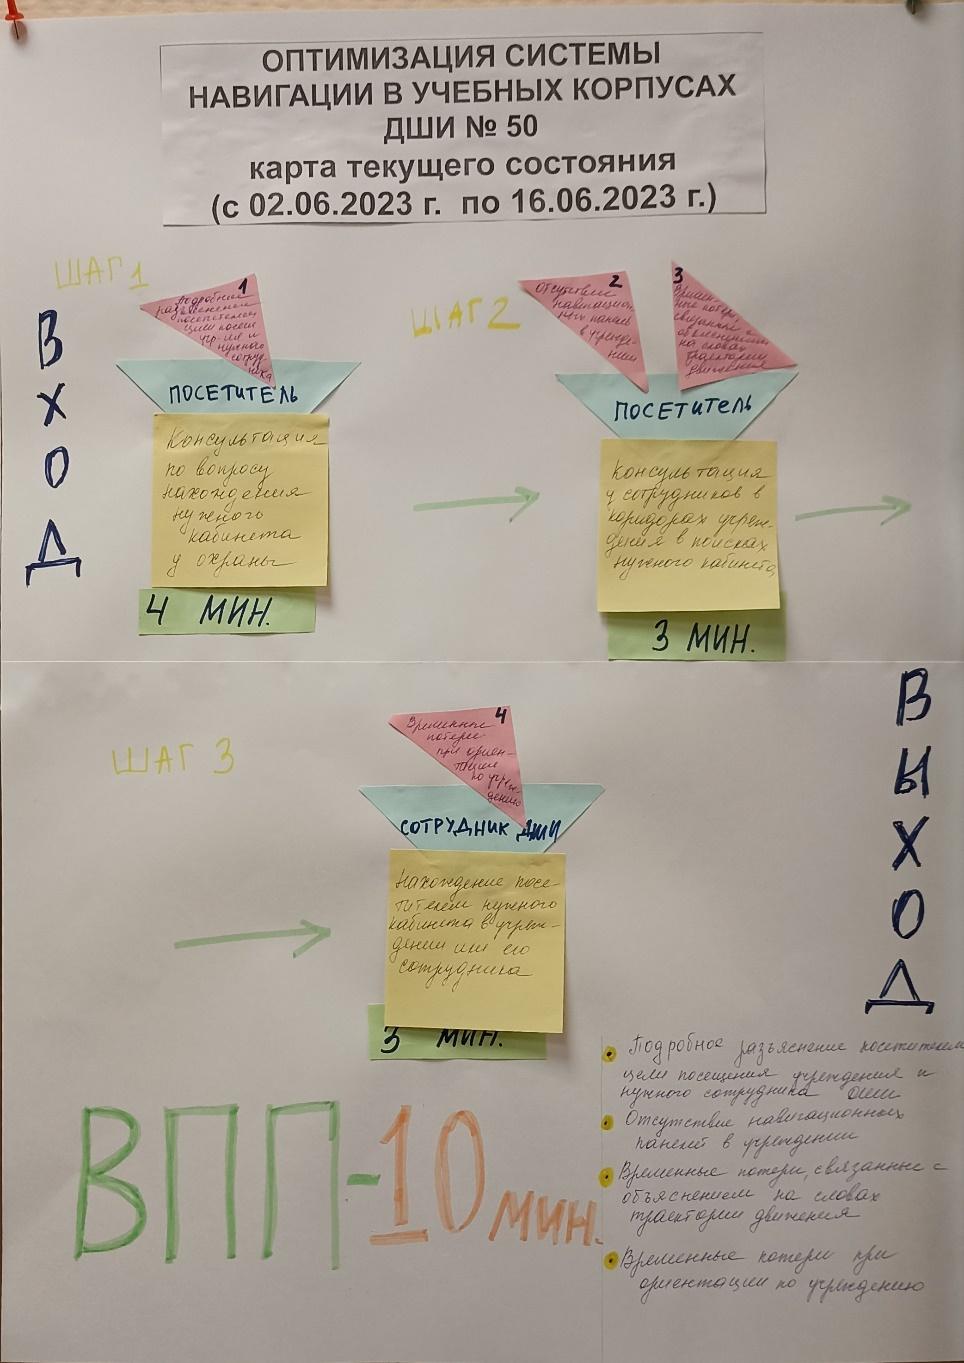 ОПТИМИЗАЦИЯ СИСТЕМЫ
НАВИГАЦИИ В УЧЕБНЫХ КОРПУСАХ
ДШИ № 50
карта текущего состояния
(с 02.06.2023 г. по 16.06.2023 г.)
ШАГ 1
ВХОД
1
Подробное
разъяснение
посетителем
цели посещ.
учр-ия и
нужного
сотруд-
ника
ПОСЕТИТЕЛЬ
Консультация
по вопросу
нахождения
нужного
кабинета
у охраны
4 МИН.
ШАГ 2
2
Отсутствие
навигацион-
ных панель
в учрежде-
нии
3
Времен-
ные потери
связанные с
объяснением
на словах
траектории
движения
ПОСЕТИТЕЛЬ
Консультация
у сотрудников в
коридорах учреж-
дения в поисках
нужного кабинета
3 МИН.
ШАГ 3
4
Временные
потери
при ориен-
тации
по учреж-
дению
СОТРУДНИК ДШИ
Нахождение посе-
тителем нужного
кабинета в учреж-
дении или его
сотрудника
3 МИН.
ВЫХОД
ВПП-10 мин.
Подробное разъяснение посетителем
цели посещения учреждения и
нужного сотрудника ДШИ
Отсутствие навигационных
панелей в учреждении
Временные потери, связанные с
объяснением на словах
траектории движения
Временные потери при
ориентации по учреждению